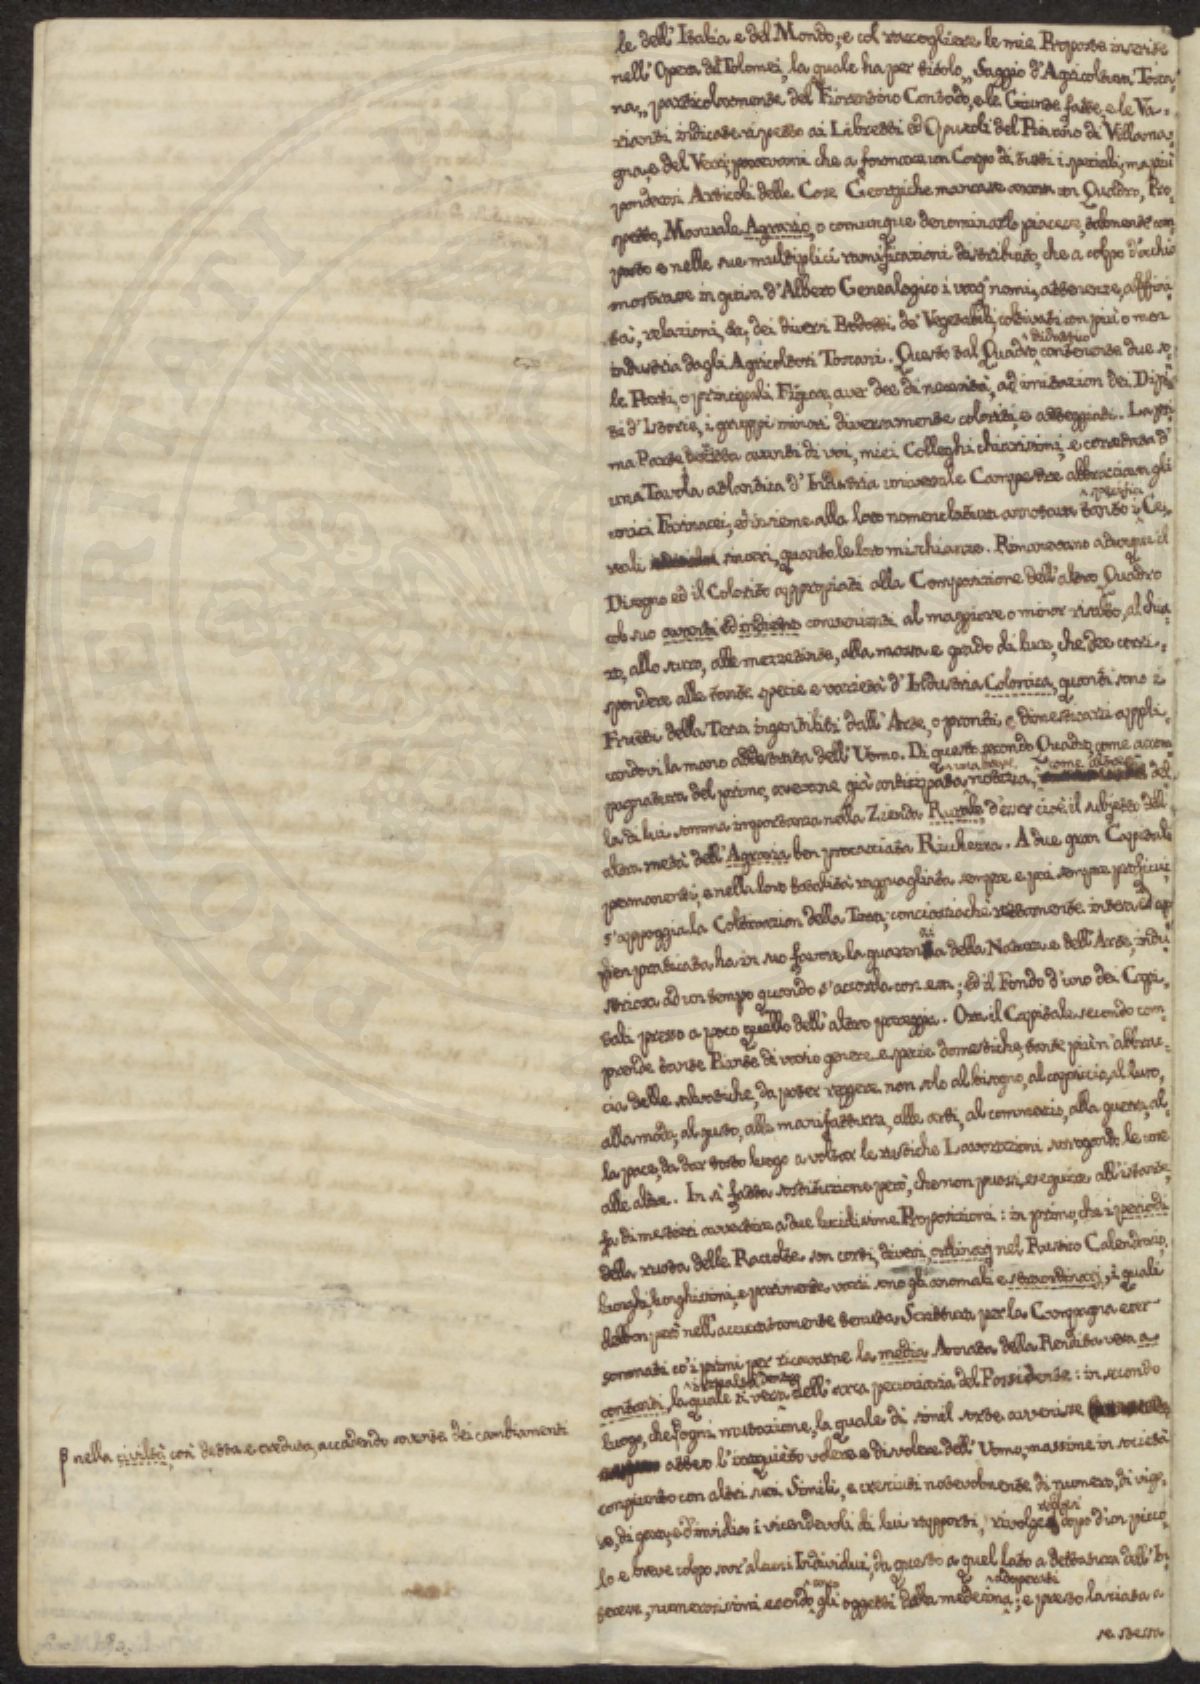 le dell' Italia e del Mondo; e col raccogliere le mie Proposte inserite
nell' Opera del Tolomei, la quale ha per titolo „ Saggio d'Agricoltura Tosca-
na„ particolarmente del Fiorentino Contado, e le Giunte fatte, e le Va-
rianti indicate rispetto ai Libretti ed Opuscoli del Piovano di Villama-
gna, e del Verri; parevami che a formare un Corpo di tutti i speciali, ma più
ponderosi Articoli delle Cose Georgiche mancasse ancora un Quadro, Pro-
spetto, Manuale Agrario, o comunque denominarlo piacesse, talmente com-
posto e nelle sue multiplici ramificazioni distribuito, che a colpo d'occhio
mostrasse in guisa d'Albero Genealogico i varj nomi, attenenze, affini-
tà, relazioni, &c, dei diversi Prodotti de' Vegetabili coltivati con più o men
didattico
industria dagli Agricoltori Toscani. Questo tal Quadro contenente due so-
le Parti, o principali Figure, aver dee di necessità, ad imitazion dei Dipin-
ti d'Istorie, i gruppi minori diversamente coloriti, e atteggiati. La pri-
ma Parte avanti di voi, miei Colleghi chiarissimi, e corredata d'
una Tavola atlantica d'Industria universale Campestre abbracciava gli
specifici
unici Farinacei, ed insieme alla loro nomenclatura annotava tanto i Ce-
reali sinceri, quanto le loro mischianze. Rimanevano adunque il
Disegno ed il Colorito appropriati alla Composizione dell' altro Quadro
col suo avanti ed indietro convenienti al maggiore o minor risalto, al chia-
ro, allo scuro, alle mezzetinte, alla massa e grado di luce, che dee corri-
spondere alle tante specie e varietà d'Industria Colonica, quanti sono i
Frutti della Terra ingentiliti dall' Arte, o pronti, e dimesticati appli-
candovi la mano addestrata dell' Uomo. Di questo secondo Quadro, come accom-
pagnatura del primo, avevane già anticipata notizia, del-
la di lui somma importanza nella Zienda Rurale, d'esser cioè il subjetto dell'
altra metà dell' Agraria ben procacciata Ricchezza. A due gran Capitali
permanenti, e nella loro totalità ragguagliata sempre e poi sempre proficui,
s'appoggia la Coltivazion della Terra; conciossiachè rettamente intesa ed ap-
pien praticata ha in suo favore la guarentia della Natura e dell' Arte, indu-
striosa ad un tempo quando s'accorda con essa; ed il Fondo d'uno dei Capi-
tali presso a poco quello dell' altro pareggia. Ora il Capitale secondo com-
prende tante Piante di vario genere e specie domestiche, tante più n' abbrac-
cia delle salvatiche, da poter reggere non solo al bisogno, al capriccio, al lusso,
alla moda, al gusto, alla manifattura, alle arti, al commercio, alla guerra, al-
la pace, da dar tosto luogo a voltar le rustiche Lavorazioni surrogando le une
alle altre. In sì fatta sostituzione però, che non puossi eseguire all' istante,
fa di mestieri avvertire a due lucidissime Proposizioni: in primo, che i periodi
della ruota delle Raccolte son corti, diversi, ordinarj nel Rustico Calendario,
lunghi, lunghissimi, e parimente varii sono gli anomali e straordinarj, i quali
debbon però nell' accuratamente tenuta Scrittura per la Campagna esser
sommati co' i primi per ricavarne la media Annata della Rendita vera a
contanti, la quale si versa dell' arca pecuniaria del Possidente: in secondo
luogo, che d'ogni mutazione, la quale di simil sorta avvenisse
atteso l'inquieto volere e disvolere dell' Uomo, massime in società
β nella civiltà, così detta e creduta, accadendo sovente dei cambiamenti
congiunto con altri suoi Simili, e cresciuti notevolmente di numero, di vigo-
re, di gara, e d'invidia i vicendevoli di lui rapporti, dopo d'un picco-
lo e breve colpo sovr' alcuni Individui, da questo a quel lato a dettatura dell' In-
adoperati
teresse, numerosissimi essendo gli oggetti della medesima; e presto lasciata a
se stessa